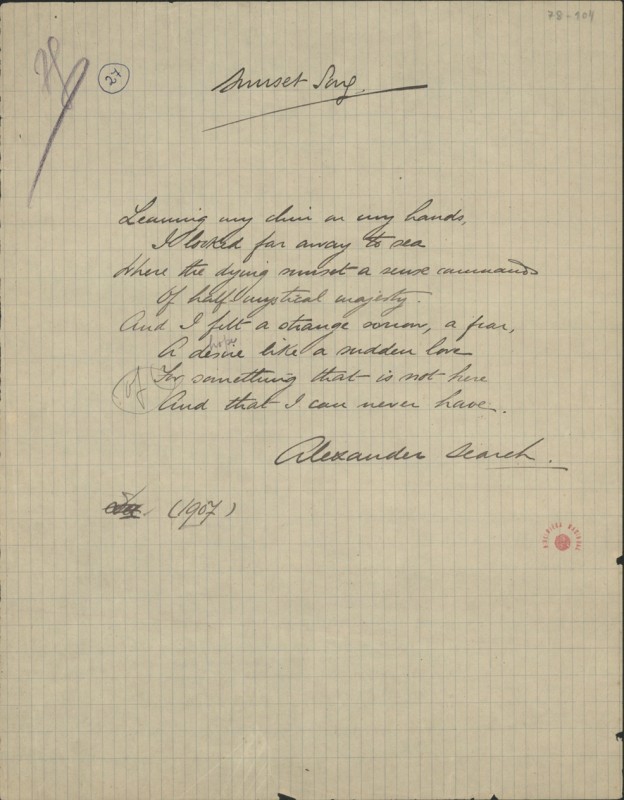 78-104
27
Sunset Song.
Leaning my chin on my hands,
I looked far away to sea
Where the dying sunset a sense commands
Of half mystical majesty.
And I felt a strange sorrow, a fear,
A desire like a sudden love
For something that is not here
of
And that I can never have.
Alexander Search.
(1907)
BIBLIOTECA NACIONAL